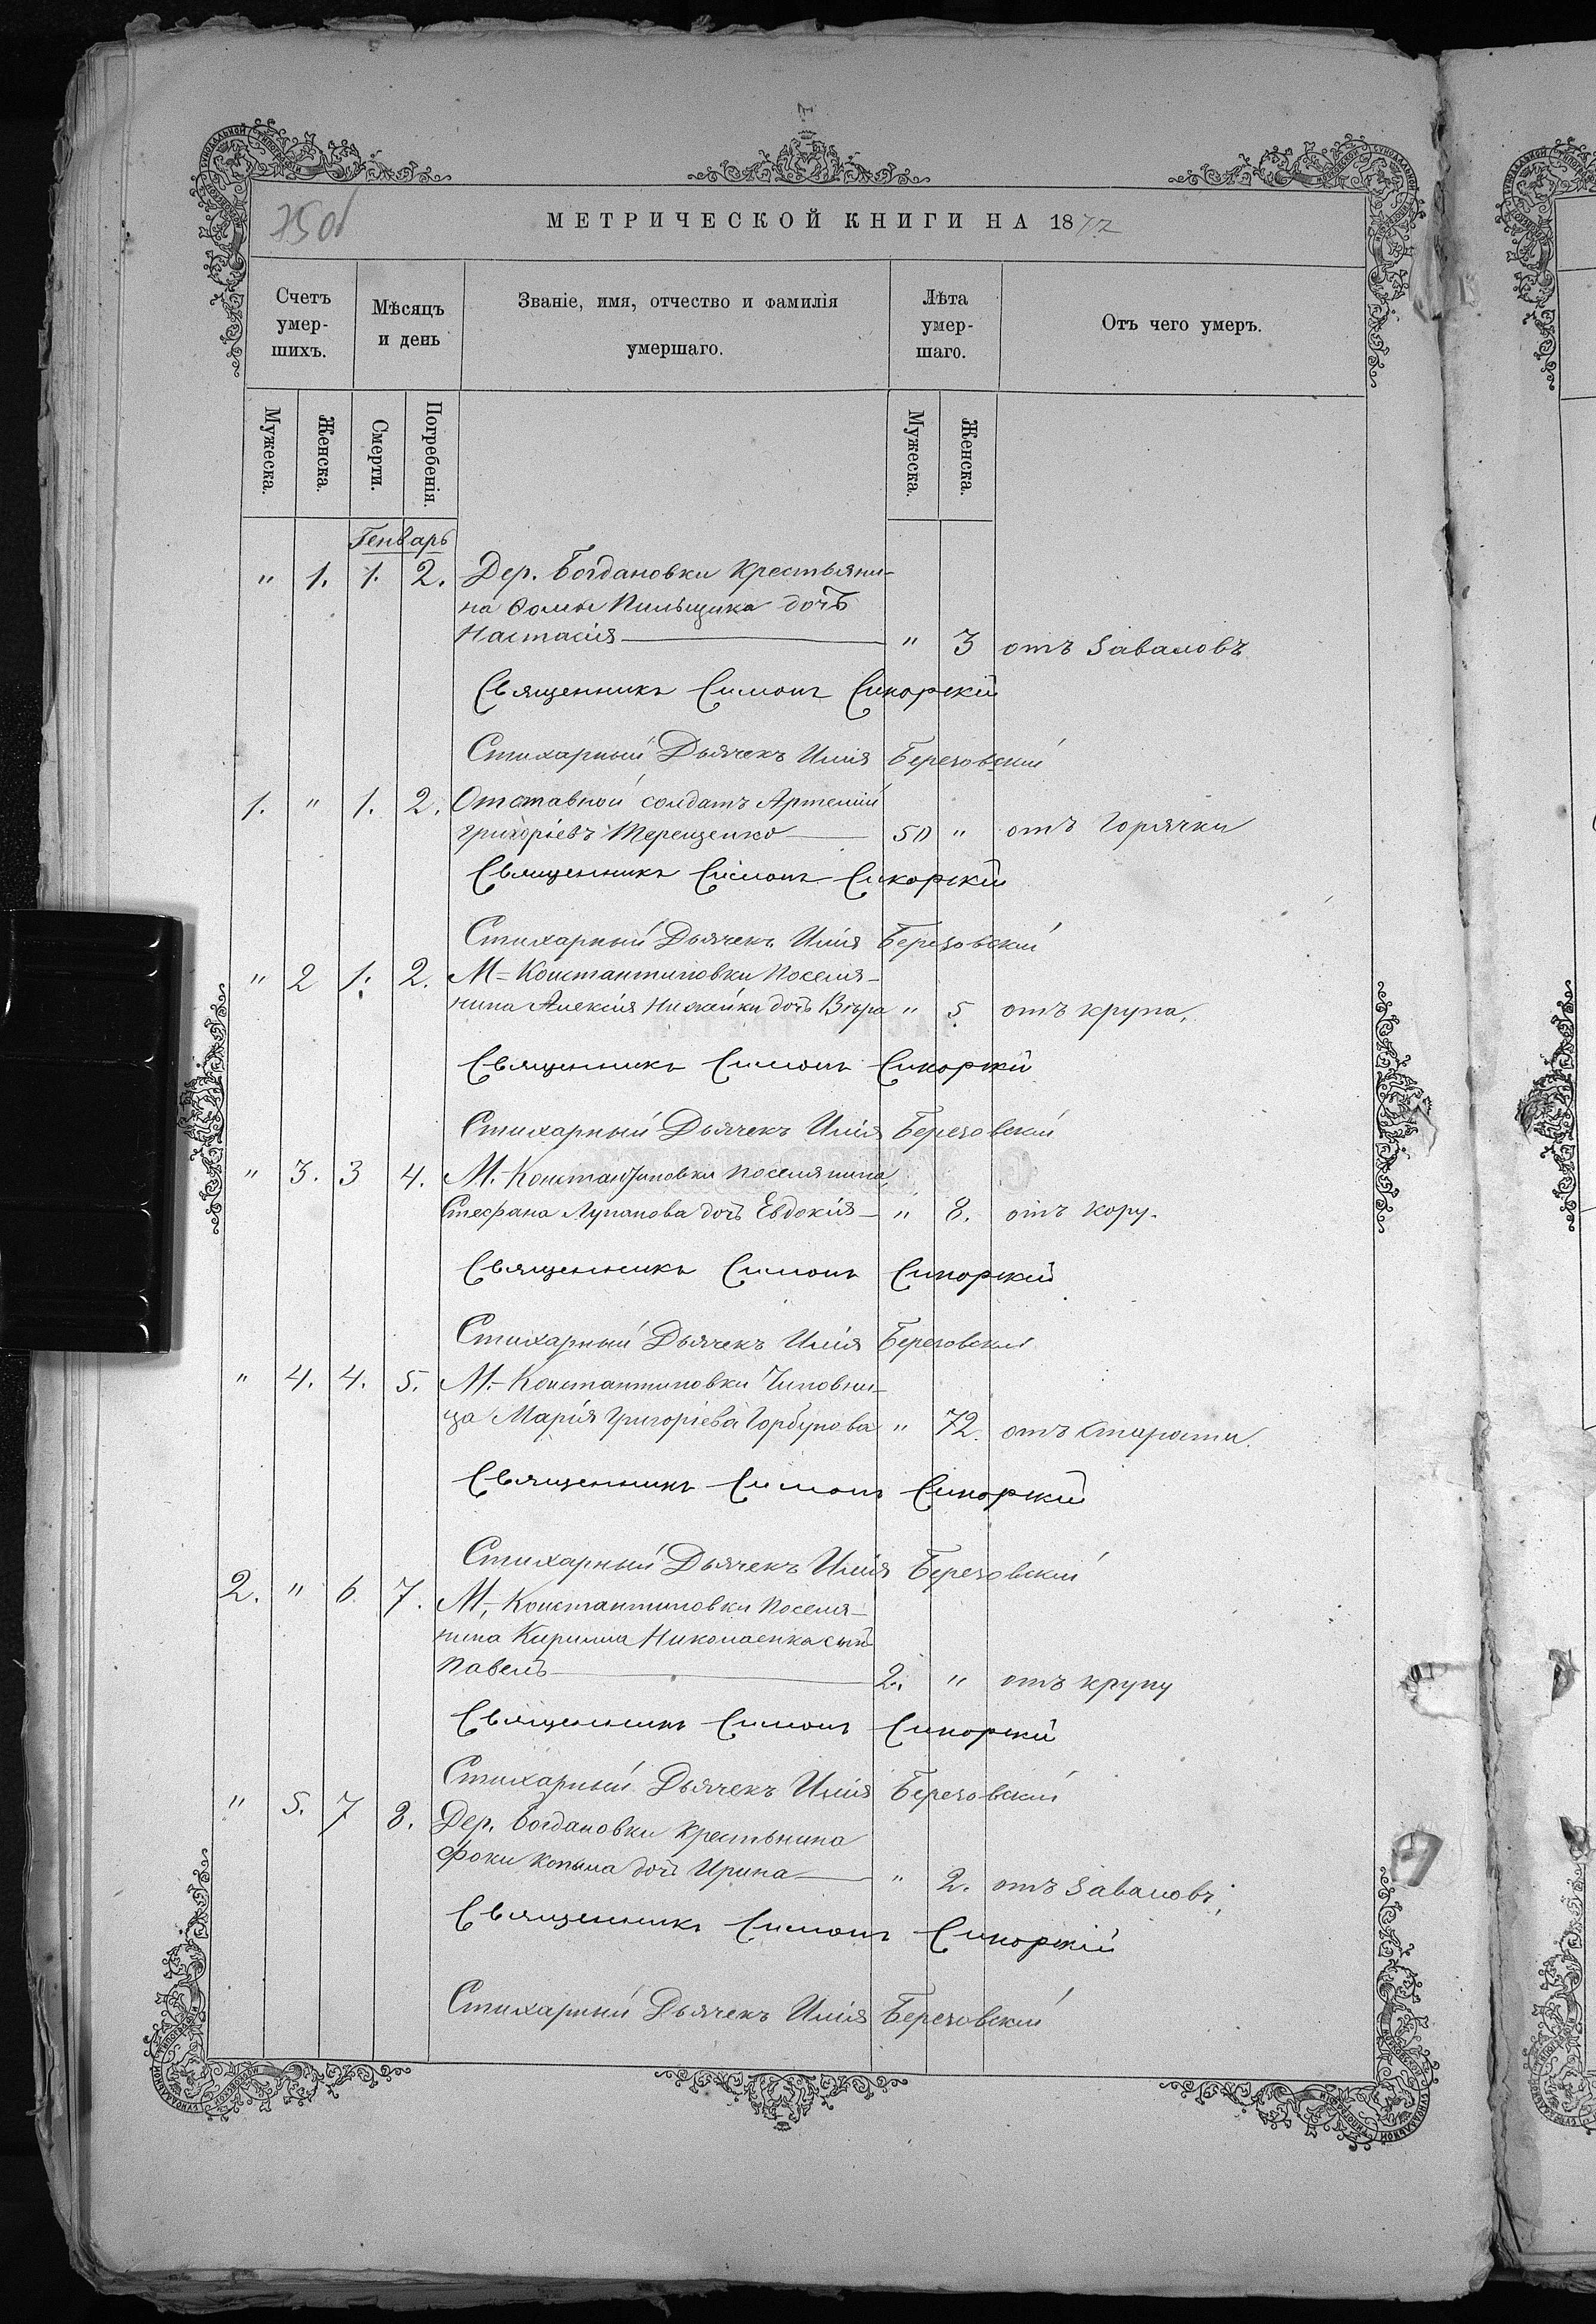 МЕТРИЧЕСКОЙ КНИГИ НА 1877
Счетъ умер- шихъ.
Мѣсяцъ и день
Званіе, имя, отчество и фамилія умершаго.
Лѣта умер- шаго.
Отъ чего умеръ.
Мужеска. Женска. Смерти. Погребенія. Мужеска. Женска.
Генварь
" 1. 1. 2. Дер. Богдановки Крестьяни-
на Ѳомы Пильщика дочь
Настасія " 3 отъ Заваловъ
Священникъ Симонъ Сикорскій
Стихарный Дьячекъ Илія Березовскій
1. " 1. 2. Отставной солдатъ Артемій
Григоріевъ Терещенко 50 " отъ Горячки
Священникъ Симонъ Сикорскій
Стихарный Дьячекъ Илія Березовскій
" 2 1. 2. М-Константиновки Поселя-
нина Алексія дочь Вѣра " 5 отъ крупа,
Священникъ Симонъ Сикорскій
Стихарный Дьячекъ Илія Березовскій
" 3. 3 4. М. Константиновки поселянина
Стефана Лупанова дочь Евдокія " 8. отъ кору.
Священникъ Симонъ Сикорскій
Стихарный Дьячекъ Илія Березовскій
" 4. 4. 5. М.-Константиновки Чиновни-
ца Марія Григоріева Горбунова " 72. отъ старости.
Священникъ Симонъ Сикорскій
Стихарный Дьячекъ Илія Березовскій
2. " 6. 7. М. Константиновки Поселя-
нина Кирилла Николаенка сынъ
Павелъ 2. " отъ крупу
Священникъ Симонъ Сикорскій
Стихарный Дьячекъ Илія Березовскій
" 5. 7 8. Дер. Богдановки Крестьнина
Фоки Копыла дочь Ирина " 2. отъ Заваловъ,
Священникъ Симонъ Сикорскій
Стихарный Дьячекъ Илія Березовскій